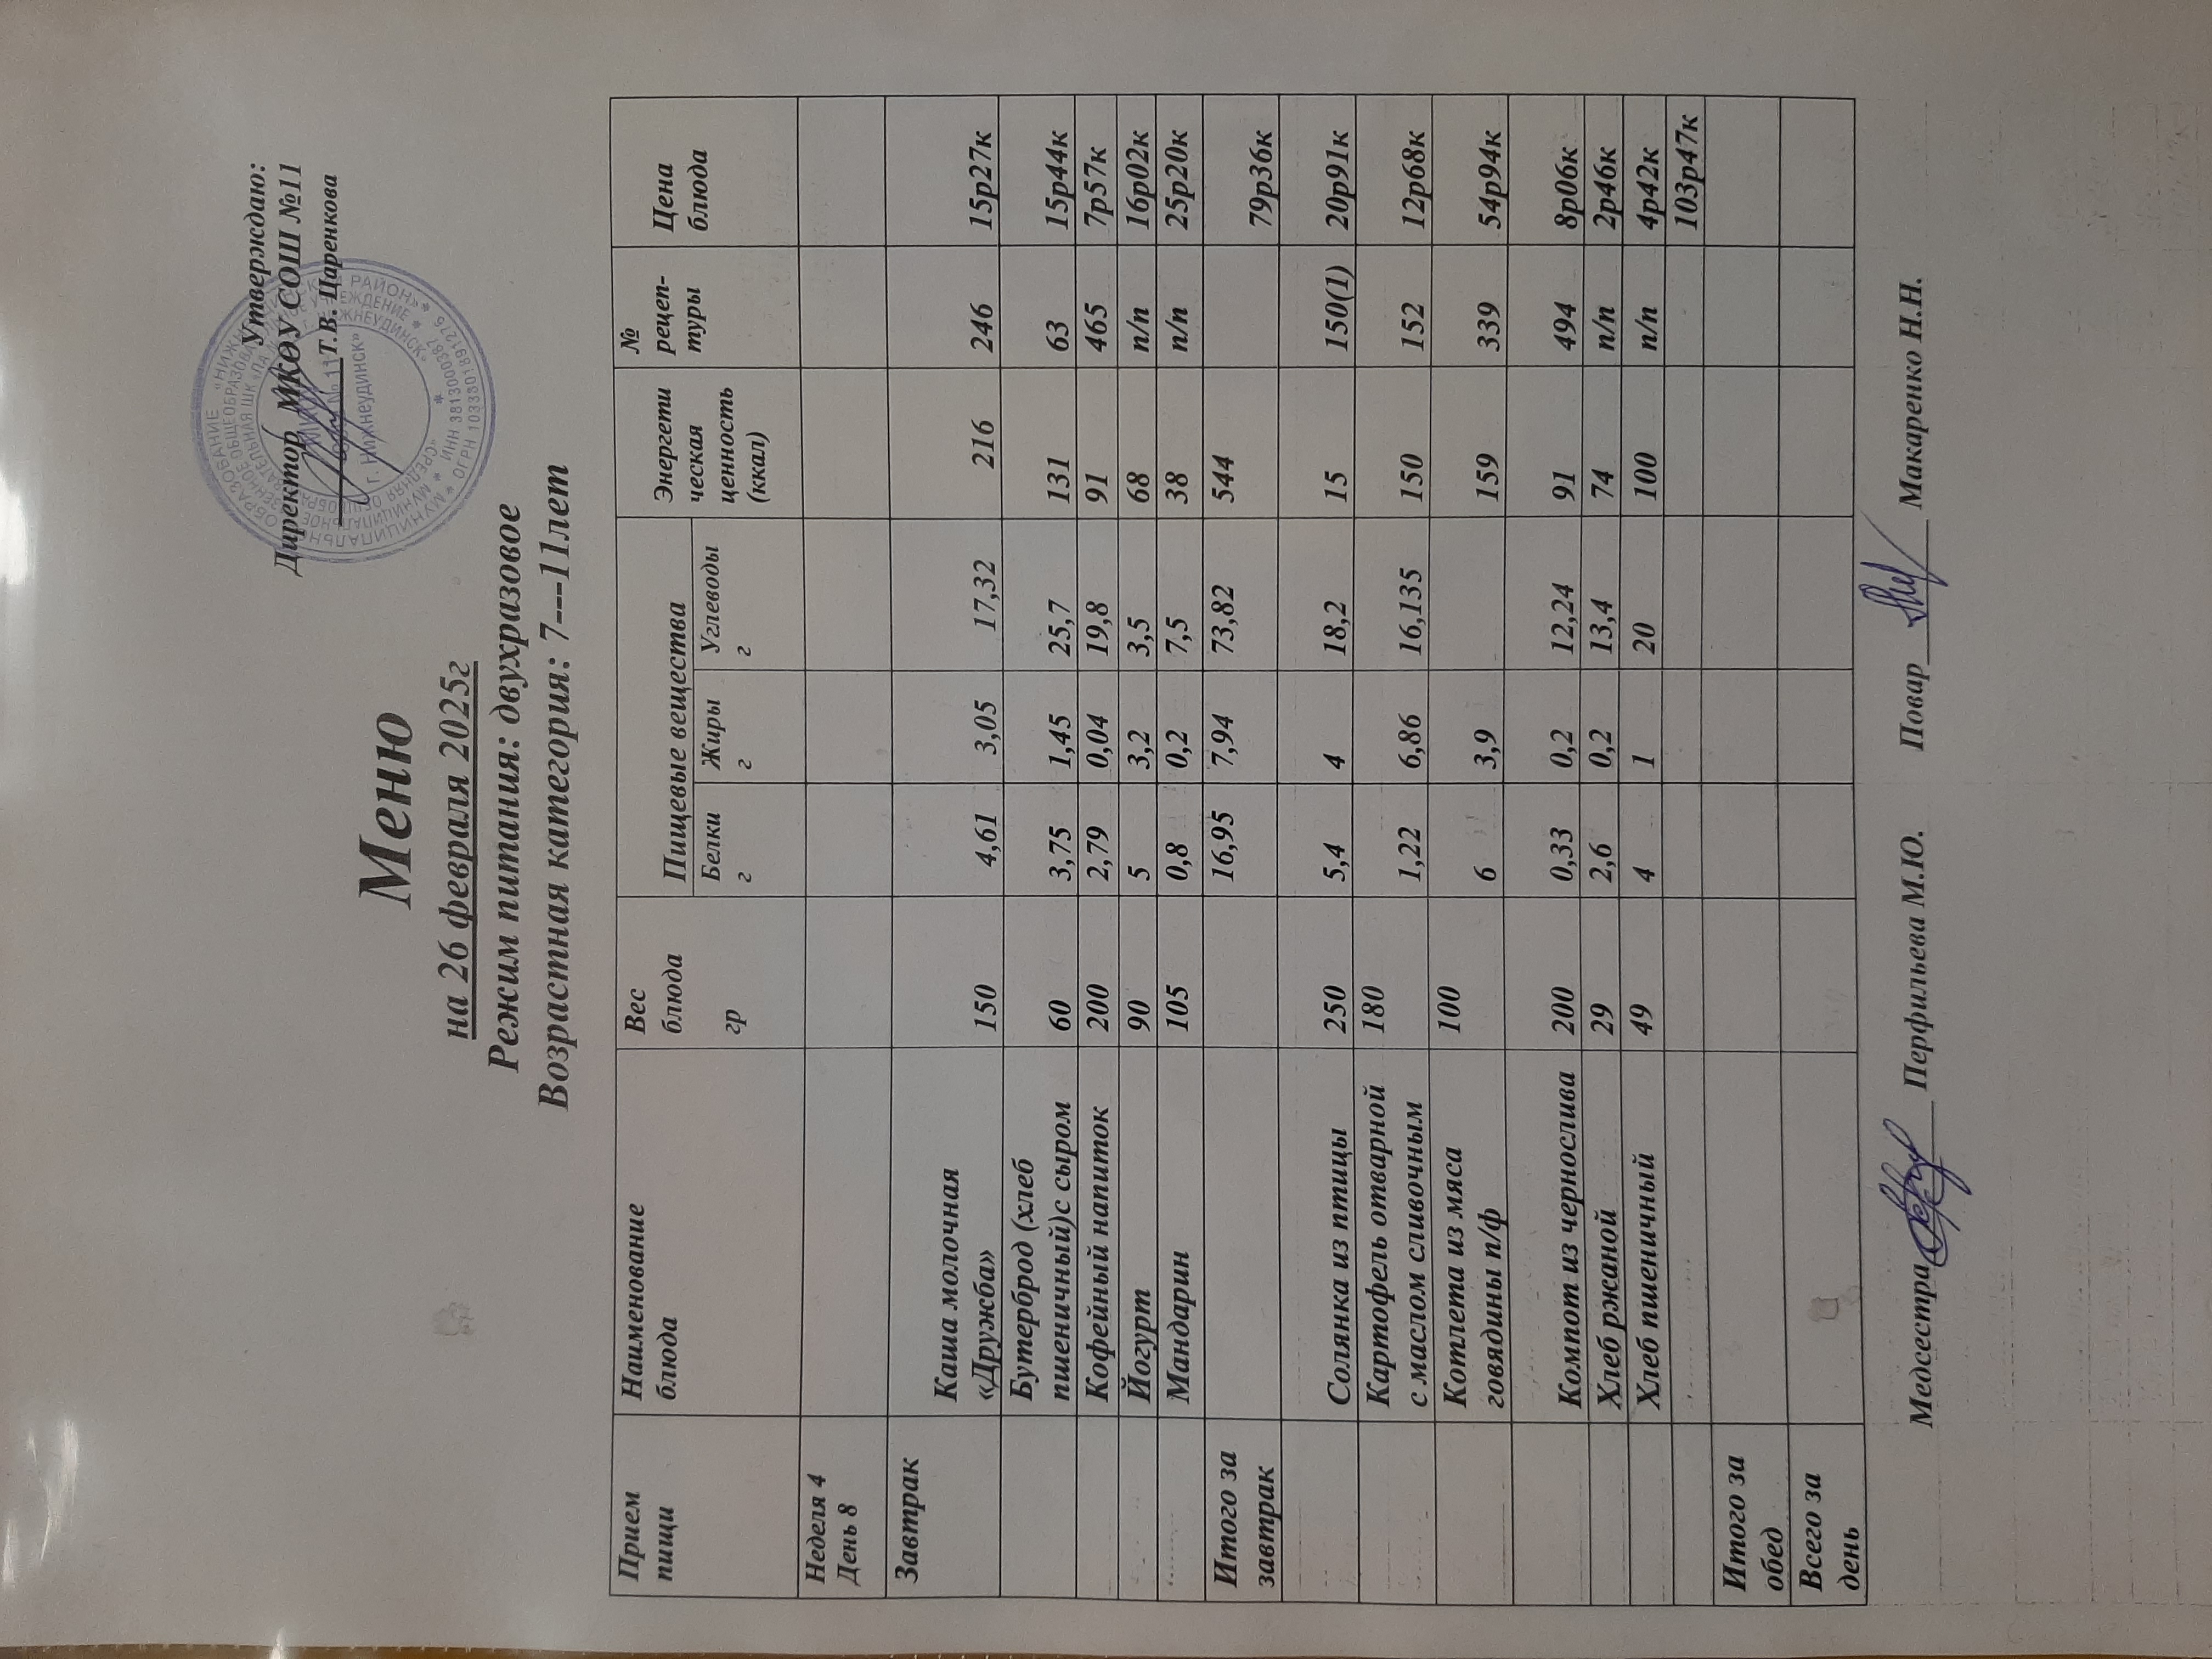 Утверждаю:
Директор МКОУ СОШ №11
Т.В. Царенкова
г. Нижнеудинск
Меню
на 26 февраля 2025г
Режим питания: двухразовое
Возрастная категория: 7---11лет
Прием пищи Наименование блюда Вес блюда гр Пищевые вещества Белки г Жиры г Углеводы г Энергети ческая ценность (ккал) № рецеп- туры Цена блюда
Неделя 4
День 8
Завтрак Каша молочная «Дружба» 150 4,61 3,05 17,32 216 246 15р27к
Бутерброд (хлеб пшеничный)с сыром 60 3,75 1,45 25,7 131 63 15р44к
Кофейный напиток 200 2,79 0,04 19,8 91 465 7р57к
Йогурт 90 5 3,2 3,5 68 п/п 16р02к
Мандарин 105 0,8 0,2 7,5 38 п/п 25р20к
Итого за завтрак 16,95 7,94 73,82 544 79р36к
Солянка из птицы 250 5,4 4 18,2 15 150(1) 20р91к
Картофель отварной с маслом сливочным 180 1,22 6,86 16,135 150 152 12р68к
Котлета из мяса говядины п/ф 100 6 3,9 159 339 54р94к
Компот из чернослива 200 0,33 0,2 12,24 91 494 8р06к
Хлеб ржаной 29 2,6 0,2 13,4 74 п/п 2р46к
Хлеб пшеничный 49 4 1 20 100 п/п 4р42к
103р47к
Итого за обед
Всего за день
Медсестра Перфильева М.Ю. Повар Макаренко Н.Н.